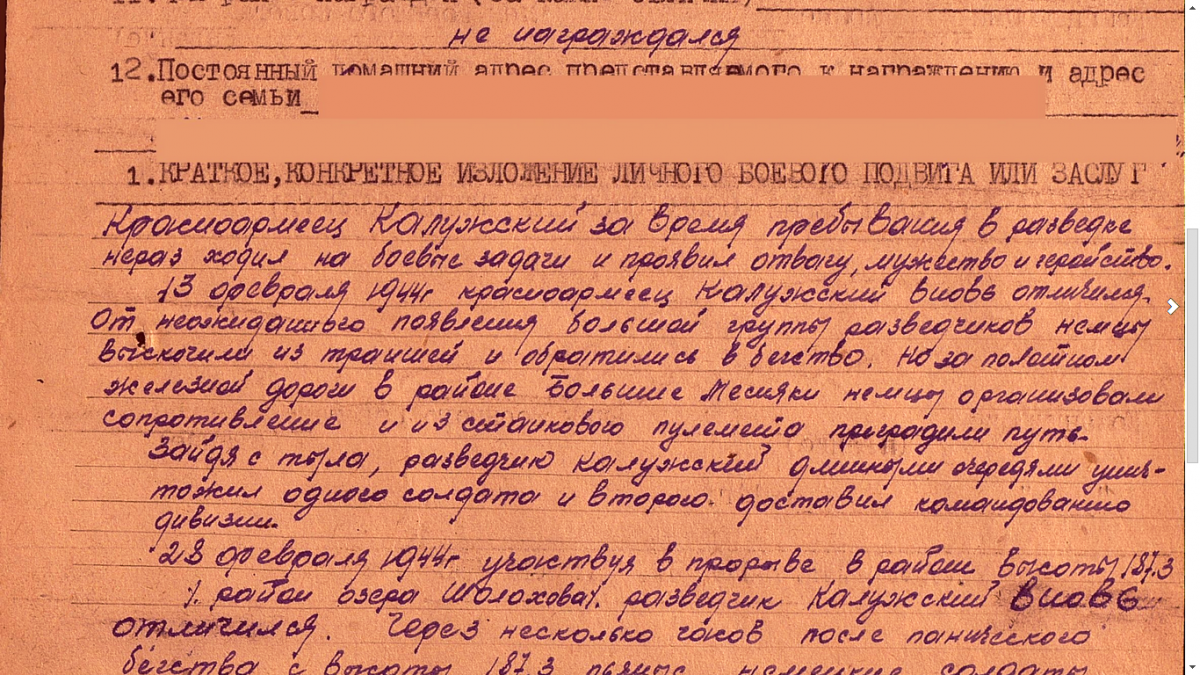 не награждался
12.Постоянный домашний адрес представляемого к награждению и адрес
его семьи
1.КРАТКОЕ,КОНКРЕТНОЕ ИЗЛОЖЕНИЕ ЛИЧНОГО БОЕВОГО ПОДВИГА ИЛИ ЗАСЛУГ
Красноармеец Калужский за время пребывания в разведке
нераз ходил на боевые задачи и проявил отвагу, мужество и геройство.
13 февраля 1944г красноармеец Калужский вновь отличился.
От неожиданного появления большой группы разведчиков немцы
выскочили из траншей и обратились в бегство. Но за полотном
железной дороги в районе Большие Месняки немцы организовали
сопротивление и из станкового пулемета преградили путь.
Зайдя с тыла, разведчик Калужский длинными очередями унич-
тожил одного солдата и второго доставил командованию
дивизии.
23 февраля 1944г участвуя в прорыве в районе высоты 187.3
/. район озера Шолохова/. разведчик Калужский вновь
отличился. Через несколько часов после панического
бегства с высоты 187.3 пьяные немецкие солдаты